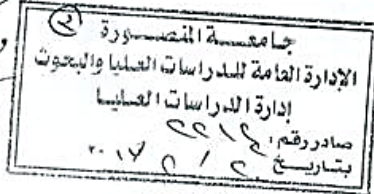 جامعة المنصورة
الإدارة العامة للدراسات العليا والبحوث
إدارة الدراسات العليا
صادر رقم:
بتاريخ / /